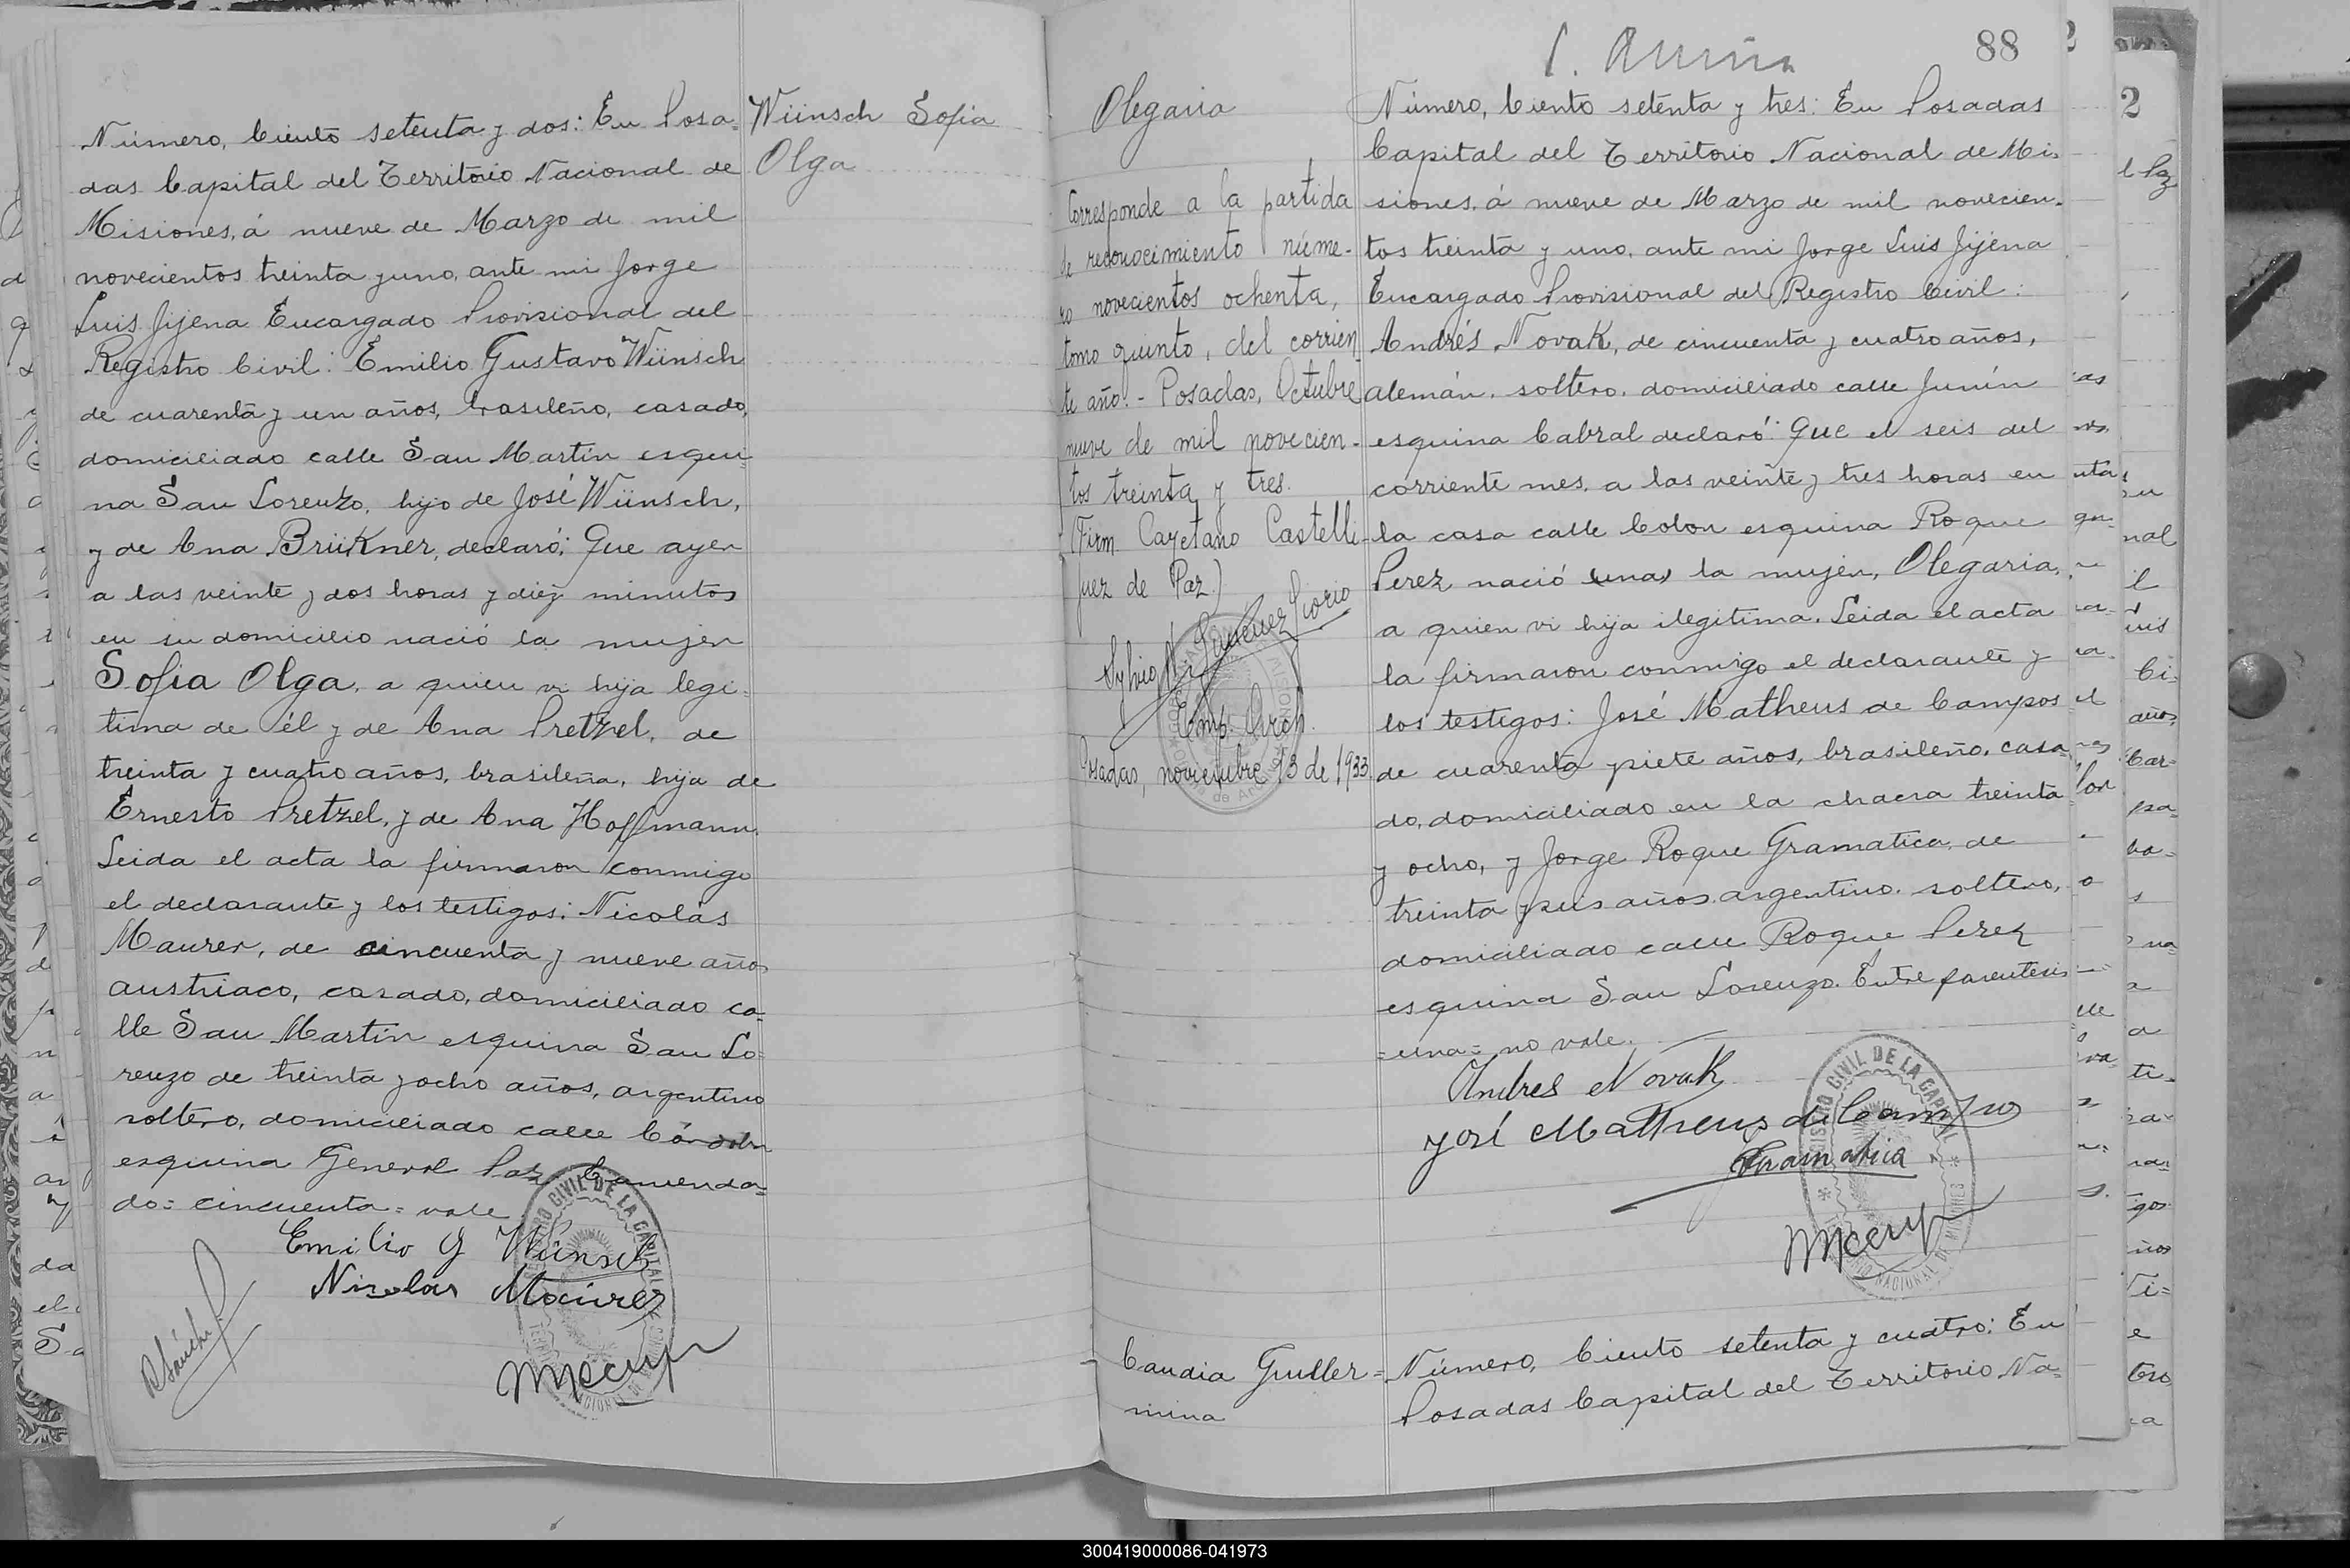 Número, Ciento setenta y dos: En Posa=
das Capital del Territorio Nacional de
Misiones, á nueve de Marzo de mil
novecientos treinta y uno, ante mi Jorge
Luis Jijena Encargado Provisional del
Registro Civil: Emilio Gustavo Wünsch
de cuarenta y un años, brasileño, casado,
domiciliado calle San Martín esqui=
na San Lorenzo, hijo de José Wünsch,
y de Ana Brükner, declaró: Que ayer
a las veinte y dos horas y diez minutos
en su domicilio nació la mujer
Sofia Olga, a quien vi hija legi=
tima de él y de Ana Pretzel, de
treinta y cuatro años, brasileña, hija de
Ernesto Pretzel, y de Ana Hoffmann.
Leida el acta la firmaron conmigo
el declarante y los testigos: Nicolás
Maurer, de cincuenta y nueve años
austriaco, casado, domiciliado ca=
lle San Martín esquina San Lo=
renzo de treinta y ocho años, argentino
soltero, domiciliado calle Córdoba
esquina General Paz. Enmenda=
do= cincuenta= vale.
Emilio G Wünsch
Nicolas Maurer
Wünsch Sofia
Olga
88
Olegaria
Corresponde a la partida
de reconocimiento núme-
ro novecientos ochenta,
tomo quinto, del corrien
te año.- Posadas, Octubre
nueve de mil novecien-
tos treinta y tres.
(Firm. Cayetano Castelli-
Juez de Paz.)
Emp. Arch.
Posadas, noviembre 23 de 1933
Número, Ciento setenta y tres: En Posadas
Capital del Territorio Nacional de Mi=
siones, á nueve de Marzo de mil novecien=
tos treinta y uno, ante mi Jorge Luis Jijena
Encargado Provisional del Registro Civil:
Andrés Novak, de cincuenta y cuatro años,
alemán, soltero, domiciliado calle Junín
esquina Cabral declaró: Que el seis del
corriente mes, a las veinte y tres horas en
la casa calle Colon esquina Roque
Perez nació (una) la mujer, Olegaria,
a quien vi hija ilegitima. Leida el acta
la firmaron conmigo el declarante y
los testigos: José Matheus de Campos
de cuarenta y siete años, brasileño, casa
do, domiciliado en la chacra treinta
y ocho, y Jorge Roque Gramatica, de
treinta y seis años argentino, soltero,
domiciliado calle Roque Perez
esquina San Lorenzo. Entre parentesis
=una= no vale.
Andres Novak
José Matheus de Campos
Gramatica
REGISTRO CIVIL DE LA CAPITAL
TERRITORIO NACIONAL DE MISIONES
Candia Guiller=
mina
Número, Ciento setenta y cuatro: En
Posadas Capital del Territorio Na=
300419000086-041973